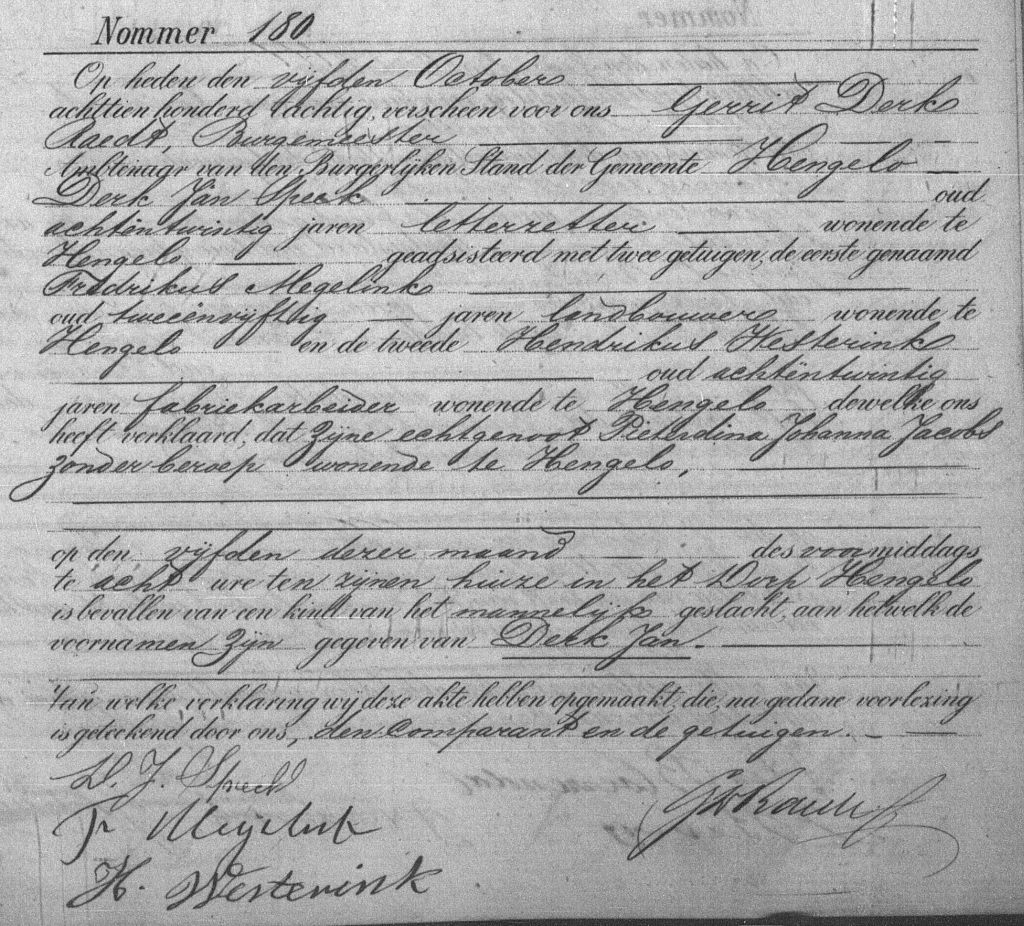 Nommer 180
Op heden den vijfden October
achttien honderd tachtig, verscheen voor ons Gerrit Derk
Raedt, Burgemeester
Ambtenaar van den Burgerlijken Stand der Gemeente Hengelo
Derk Jan Speck oud
achtentwintig jaren letterzetter wonende te
Hengelo geadsisteerd met twee getuigen, de eerste genaamd
Fredrikus Megelink
oud tweeënvijftig jaren landbouwer wonende te
Hengelo en de tweede Hendrikus Westerink
oud achtëntwintig
jaren fabriekarbeider wonende te Hengelo dewelke ons
heeft verklaard, dat zijne echtgenoot Pieterdina Johanna Jacobs
zonder beroep wonende te Hengelo,
op den vijfden dezer maand des voormiddags
te acht ure ten zijnen huize in het Dorp Hengelo
is bevallen van een kind van het mannelijk geslacht, aan hetwelk de
voornamen zijn gegeven van Derk Jan.
Van welke verklaring wij deze akte hebben opgemaakt, die, na gedane voorlezing
is geteekend door ons, den comparant en de getuigen.
D. J. Speck
Fr Megelink
H. Westerink